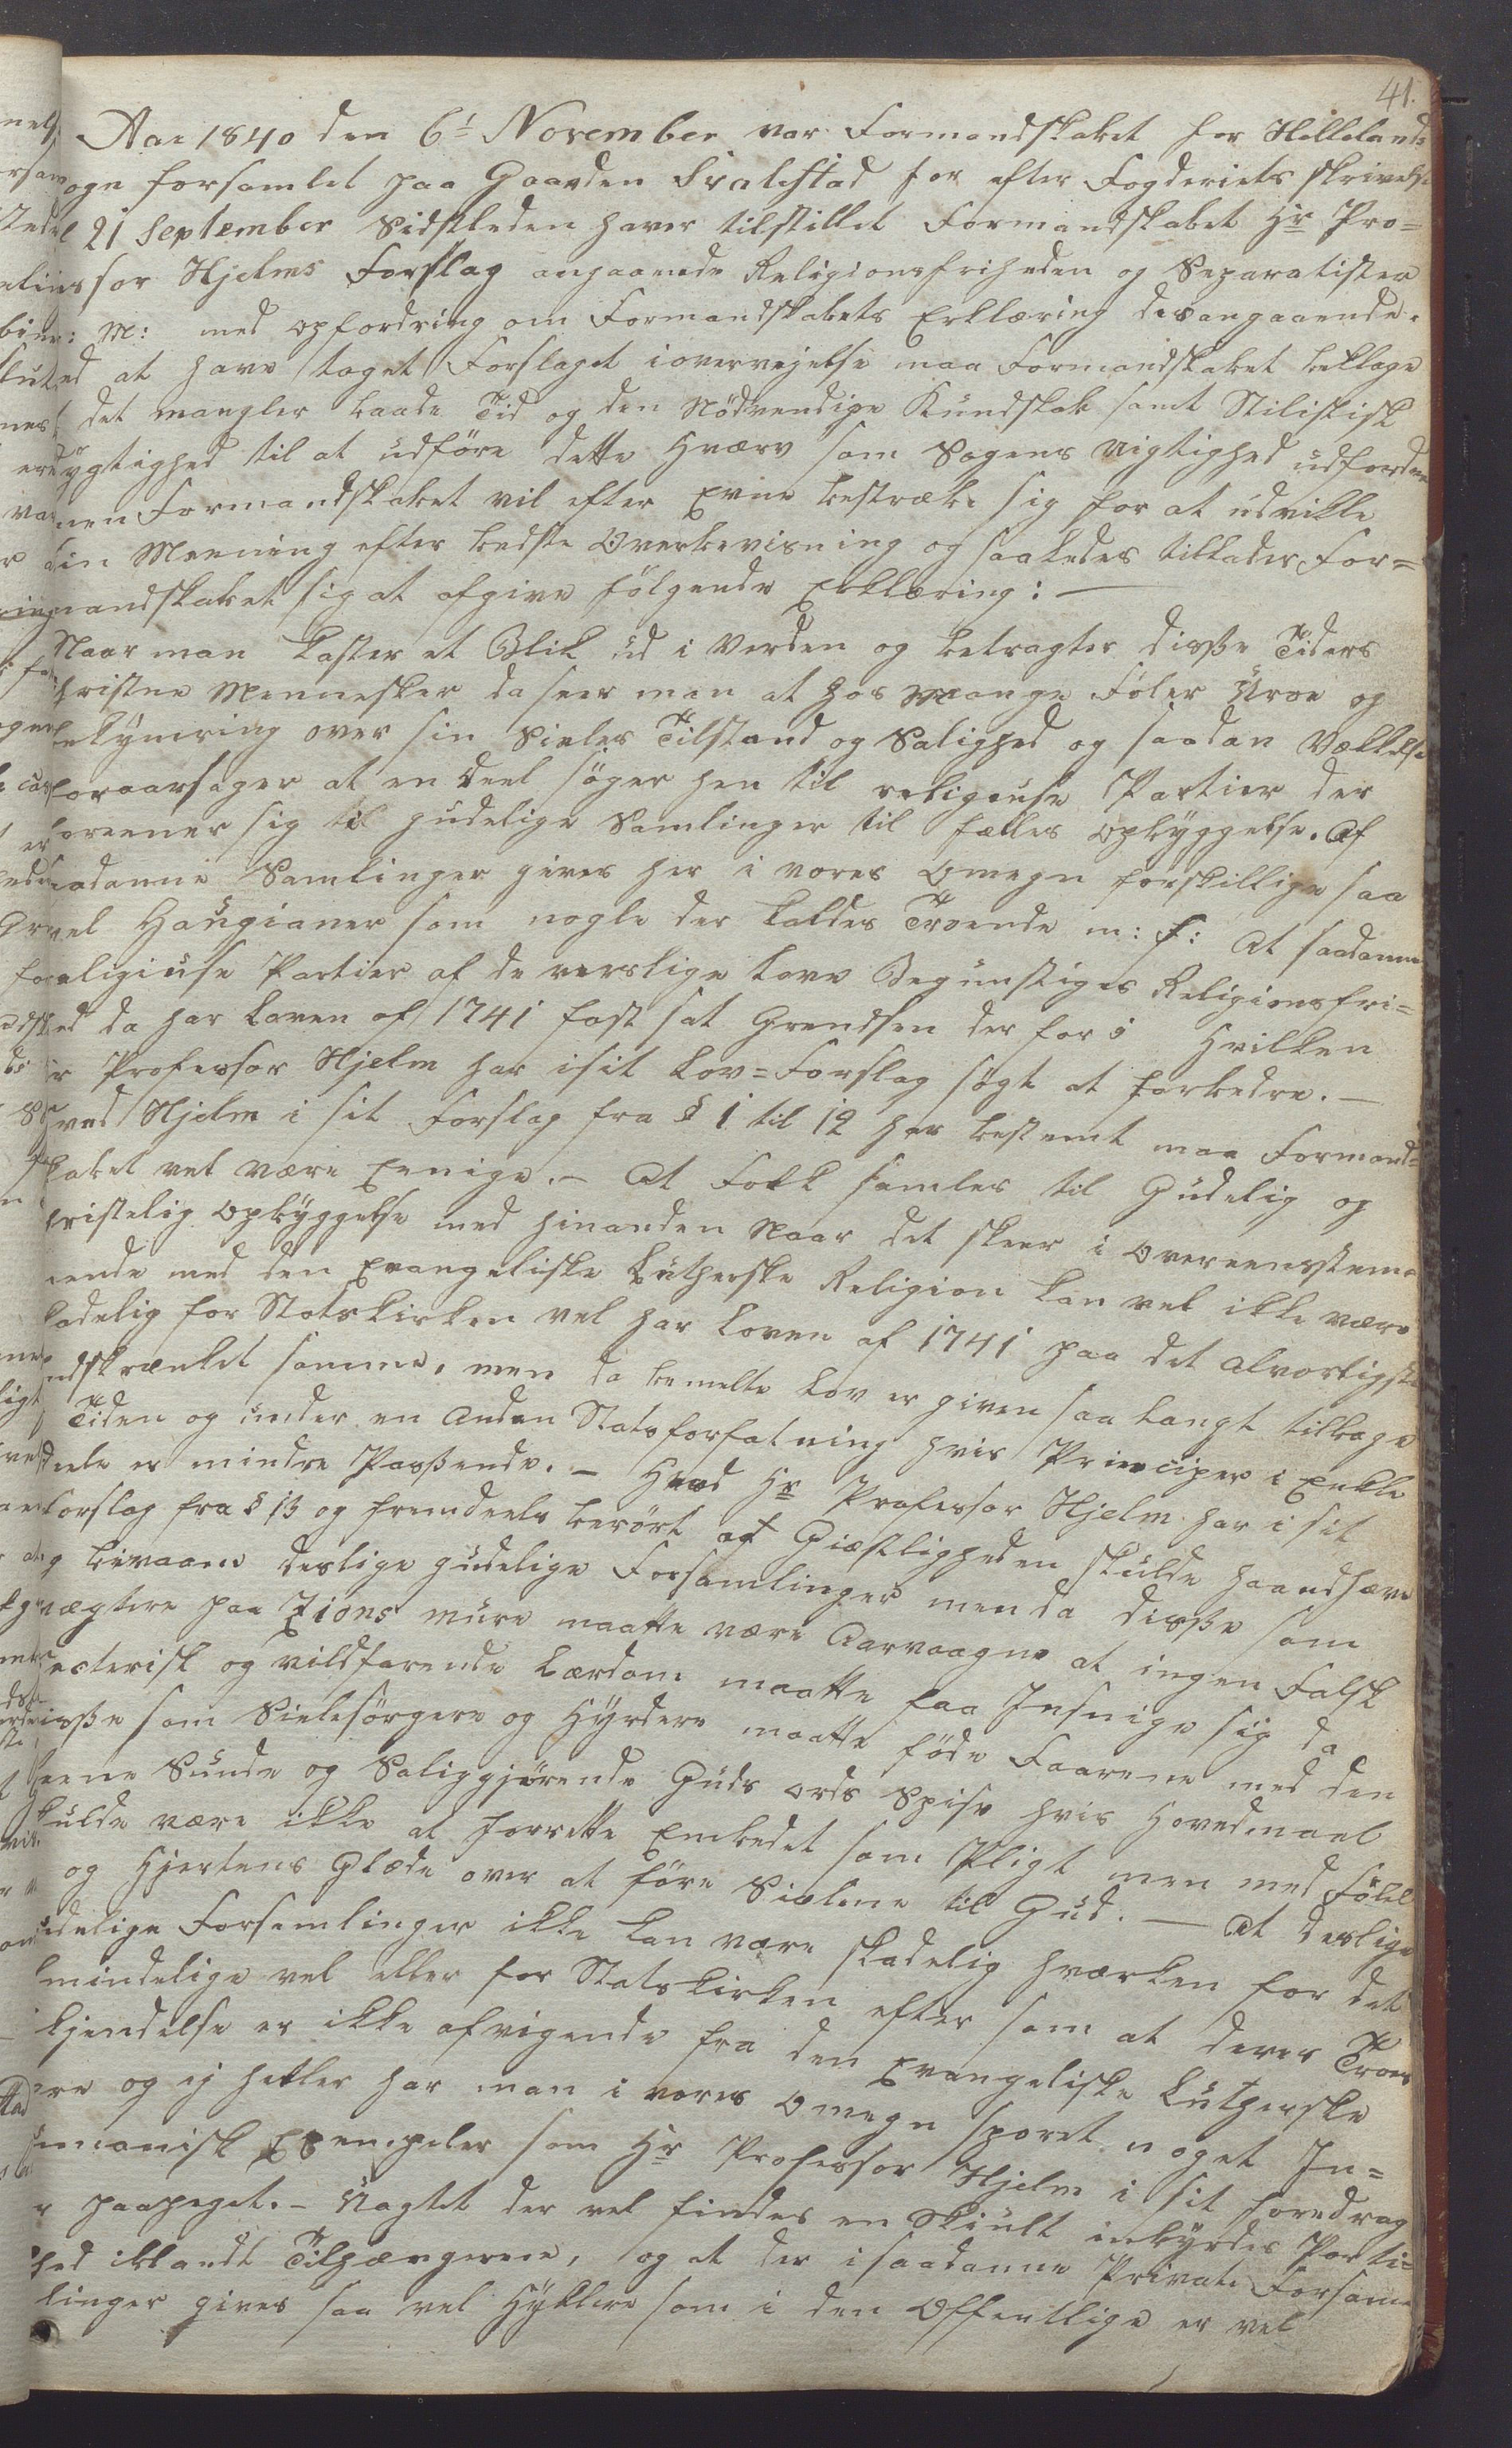 41.
Aar 1840 den 6t November var Formandskabet for Hellelands
ogn forsamlet paa Gaarden Svalestad for efter Fogderiets skrivelse
21 September Sidstleden haver tilstillet Formandskabet Hr Pro=
sor Hjelms Forslag angaaende Religionsfriheden og Separatister
: M: med opfordring om Formandskabets Erklæring desangaaende.
ed at have taget Forslaget i overvejelse maa Formandskabet beklage
det mangler baade Tid og den Nödvendige Kundskab samt Stilistisk
ygtighed til at udföre dette Hværv som Sagens Vigtighed udfordre
men Formandskabet vil efter Evne bestræbe sig for at udvikle
sin Meening efter bedste Overbevisning og saaledes tillader For=
mandskabet sig at afgive fölgende Erklæring: —
Naar man kaster et Blik ud i Verden og betragter disse Tiders
hristne Mennesker da seer man at hos Mange Föler Uroe og
ekymring over sin Sieles Tilstand og Salighed og saadan Vækkelse
foraarsager at en deel söger hen til religeuse Partier der
foreener sig til gudelige Samlinger til fælles opbyggelse. Af
aadanne Samlinger gives her i vores Omegn forskillige saa
vel Haugianer som nogle der kaldes Troende m: f: At saadanne
eligieuse Partier af de verslige Love Begunstiges Religionsfri=
ed da har Loven af 1741 fast sat Grendsen der for i Hvilken
r Professor Hjelm har i sit Lov=Forslag sögt at forbedre. —
vad Hjelm i sit Forslag fra § 1 til 12 har bestemt maa Formand=
kabet vel være Eenige. — At Folk samles til Gudelig og
hristelig Opbyggelse med hinanden Naar det skeer i Overeensstem=
ende med den Evangeliske Lutherske Religion kan vel ikke være
kadelig for Statskirken vel har Loven af 1741 paa det alvorligste
ndskrænket samme, men da bemelte Lov er given saa langt tilbage
Tiden og under en Anden Statsforfatning hvis Principer i Enkle
deele er mindre Passende. — Hvad Hr Professor Hjelm har i sit
Forslag fra § 13 og fremdeels berört at Giæstligheden skulde haandhæve
g bivaane deslige gudelige Forsamlinger men da disse som
vægtere paa Zions mure maatte være Aarvaagne at ingen Falsk
ecterisk og vildfarende Lærdom maatte faa Insnige sig da
isse som Sielesörgere og Hyrdere maatte föde Faarene med den
eene Sunde og Saliggjörende Guds ords Spise hvis Hovedmaal
kulde være ikke at forrette Embedet som Pligt men med Fölel
og Hjertens Glæde over at före Sielene til Gud. — At deslige
udelige Forsamlinger ikke kan være skadelig hværken for det
lmindelige vel eller for Statskirken efter som at deres Troes
kjendelse er ikke afvigende fra den Evangeliske Lutherske
ære og ej heller har man i vores Omegn sporet noget In=
umanisk Exempeler som Hr Professor Hjelm i sit foredrag
r paapeget. — Uagtet der vel findes en Skiult inbyrdes Parti=
hed iblandt Tilhængerne, og at der i saadanne Private Forsam=
linger gives saa vel Hyklere som i den Offentlige er vel